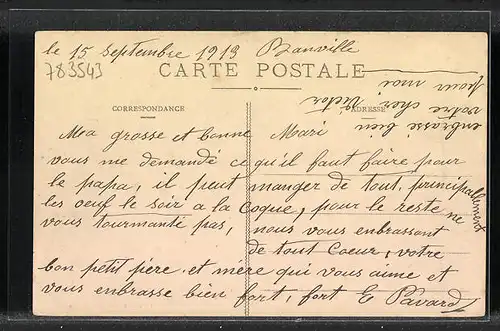 le 15 septembre 1913 Banville
783543
CARTE POSTALE
CORRESPONDANCE
ADRESSE
enbrassé bien
votre cher Victor
pour moi
Ma grosse et bonne Mari
vous me demandé ce qu'il faut faire pour
le papa, il peut manger de tout, principallement
les oeuf le soir a la Coque, pour le reste ne
vous tourmanté pas, nous vous enbrassont
de tout Coeur, votre
bon petit père, et mère qui vous aime et
vous enbrasse bien fort, fort E Pavard